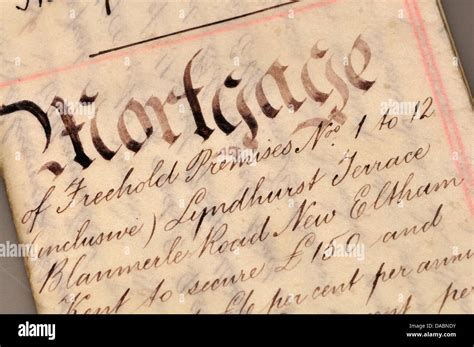 Mortgage
of Freehold Premises Nos. 1 to 12
(inclusive) Lyndhurst Terrace
Blanmerle Road New Eltham
Kent to secure £150 and
£6 percent per ann
alamy
Image ID: DABNDY
www.alamy.com